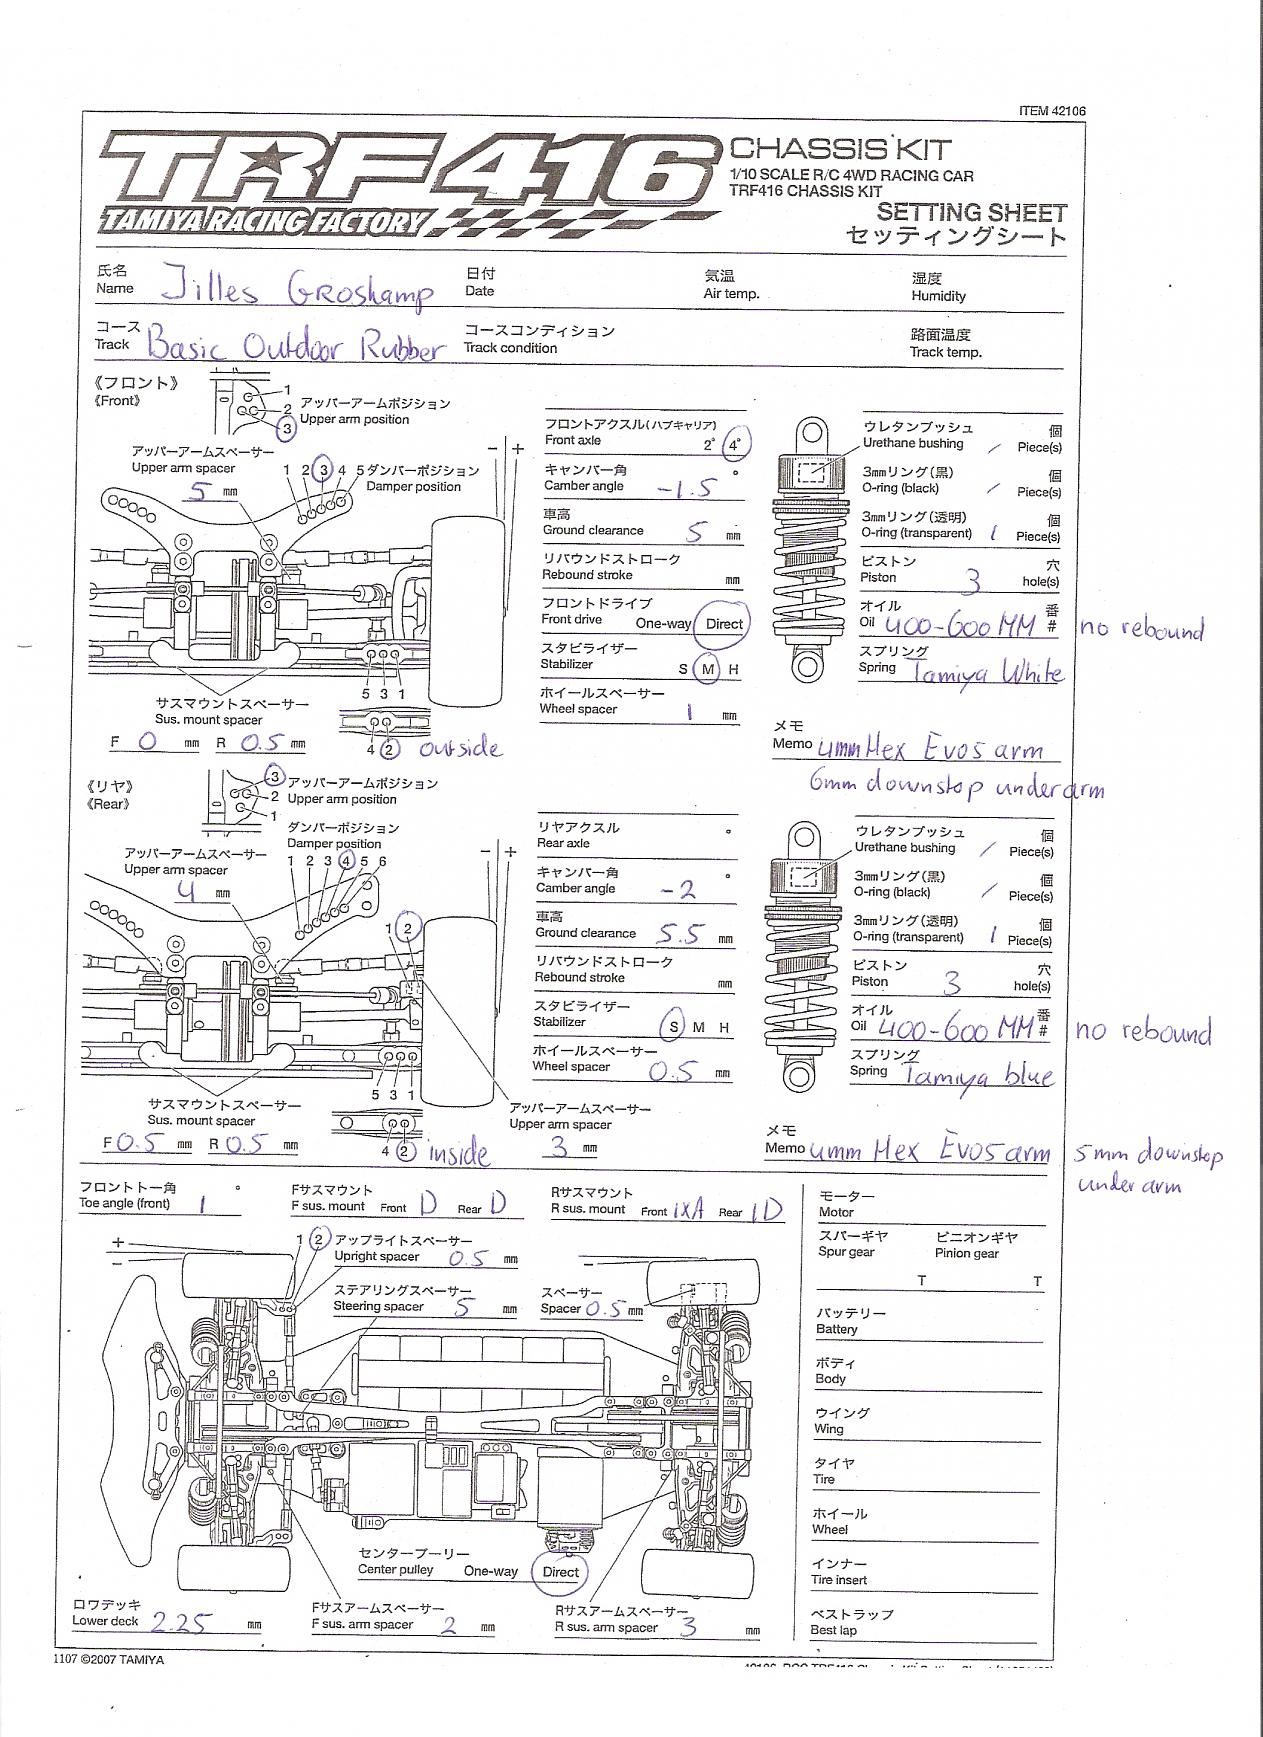 ITEM 42106
TRF416
TAMIYA RACING FACTORY
CHASSIS KIT
1/10 SCALE R/C 4WD RACING CAR
TRF416 CHASSIS KIT
SETTING SHEET
セッティングシート
氏名 日付 気温 湿度
Name Jilles Groskamp Date Air temp. Humidity
コース コースコンディション 路面温度
Track Basic Outdoor Rubber Track condition Track temp.
《フロント》
《Front》
1
2
3
アッパーアームポジション
Upper arm position
アッパーアームスペーサー
Upper arm spacer
5 mm
1 2 3 4 5 ダンパーポジション
Damper position
- +
5 3 1
サスマウントスペーサー
Sus. mount spacer
F 0 mm R 0.5 mm
4 2 outside
フロントアクスル(ハブキャリア)
Front axle 2° 4°
キャンバー角 °
Camber angle -1.5
車高
Ground clearance 5 mm
リバウンドストローク
Rebound stroke mm
フロントドライブ
Front drive One-way Direct
スタビライザー
Stabilizer S M H
ホイールスペーサー
Wheel spacer 1 mm
ウレタンブッシュ 個
Urethane bushing / Piece(s)
3mmリング(黒) 個
O-ring (black) / Piece(s)
3mmリング(透明) 個
O-ring (transparent) 1 Piece(s)
ピストン 穴
Piston 3 hole(s)
オイル 番
Oil 400-600 MM # no rebound
スプリング
Spring Tamiya White
メモ
Memo 4mm Hex Evo5 arm
6mm downstop under arm
《リヤ》
《Rear》
3
2
1
アッパーアームポジション
Upper arm position
ダンパーポジション
Damper position
1 2 3 4 5 6
アッパーアームスペーサー
Upper arm spacer
4 mm
- +
1 2
5 3 1
サスマウントスペーサー
Sus. mount spacer
F 0.5 mm R 0.5 mm
4 2 inside
リヤアクスル °
Rear axle
キャンバー角 °
Camber angle -2
車高
Ground clearance 5.5 mm
リバウンドストローク
Rebound stroke mm
スタビライザー
Stabilizer S M H
ホイールスペーサー
Wheel spacer 0.5 mm
アッパーアームスペーサー
Upper arm spacer
3 mm
ウレタンブッシュ 個
Urethane bushing / Piece(s)
3mmリング(黒) 個
O-ring (black) / Piece(s)
3mmリング(透明) 個
O-ring (transparent) 1 Piece(s)
ピストン 穴
Piston 3 hole(s)
オイル 番
Oil 400-600 MM # no rebound
スプリング
Spring Tamiya blue
メモ
Memo 4mm Hex Evo5 arm 5mm downstop
under arm
フロントトー角 °
Toe angle (front) 1
Fサスマウント
F sus. mount Front D Rear D
Rサスマウント
R sus. mount Front 1XA Rear 1D
+
-
1 2 アップライトスペーサー
Upright spacer 0.5 mm
ステアリングスペーサー
Steering spacer 5 mm
+
-
スペーサー
Spacer 0.5 mm
センタープーリー
Center pulley One-way Direct
ロワデッキ
Lower deck 2.25 mm
Fサスアームスペーサー
F sus. arm spacer 2 mm
Rサスアームスペーサー
R sus. arm spacer 3 mm
モーター
Motor
スパーギヤ ピニオンギヤ
Spur gear Pinion gear
T T
バッテリー
Battery
ボディ
Body
ウイング
Wing
タイヤ
Tire
ホイール
Wheel
インナー
Tire insert
ベストラップ
Best lap
1107 ©2007 TAMIYA